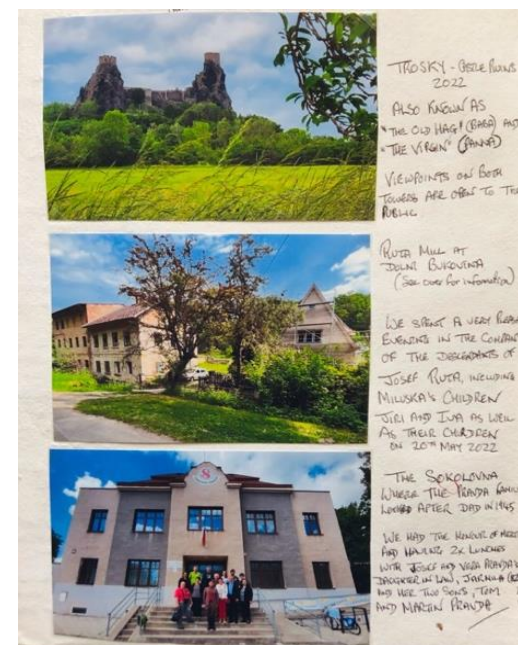 TROSKY - CASTLE RUINS
2022
ALSO KNOWN AS
"THE OLD HAG" (BABA) AND
"THE VIRGIN" (PANNA)
VIEWPOINTS ON BOTH
TOWERS ARE OPEN TO THE
PUBLIC
RUTA MILL AT
DOLNI BUKOVINA
(See over for information)
WE SPENT A VERY
EVENING IN THE COMPANY
OF THE DESCENDANTS OF
JOSEF RUTA, INCLUDING
MILUSKA'S CHILDREN
JIRI AND IVA AS WELL
AS THEIR CHILDREN
ON 20TH MAY 2022
THE SOKOLOVNA
WHERE THE PRAVDA
LOOKED AFTER DAD IN 1945
WE HAD THE HONOUR OF
AND HAVING 2X LUNCHES
WITH JOSEF AND VERA PRAVDA
DAUGHTER IN LAW, JARMILA
AND HER TWO SONS, TOM
AND MARTIN PRAVDA